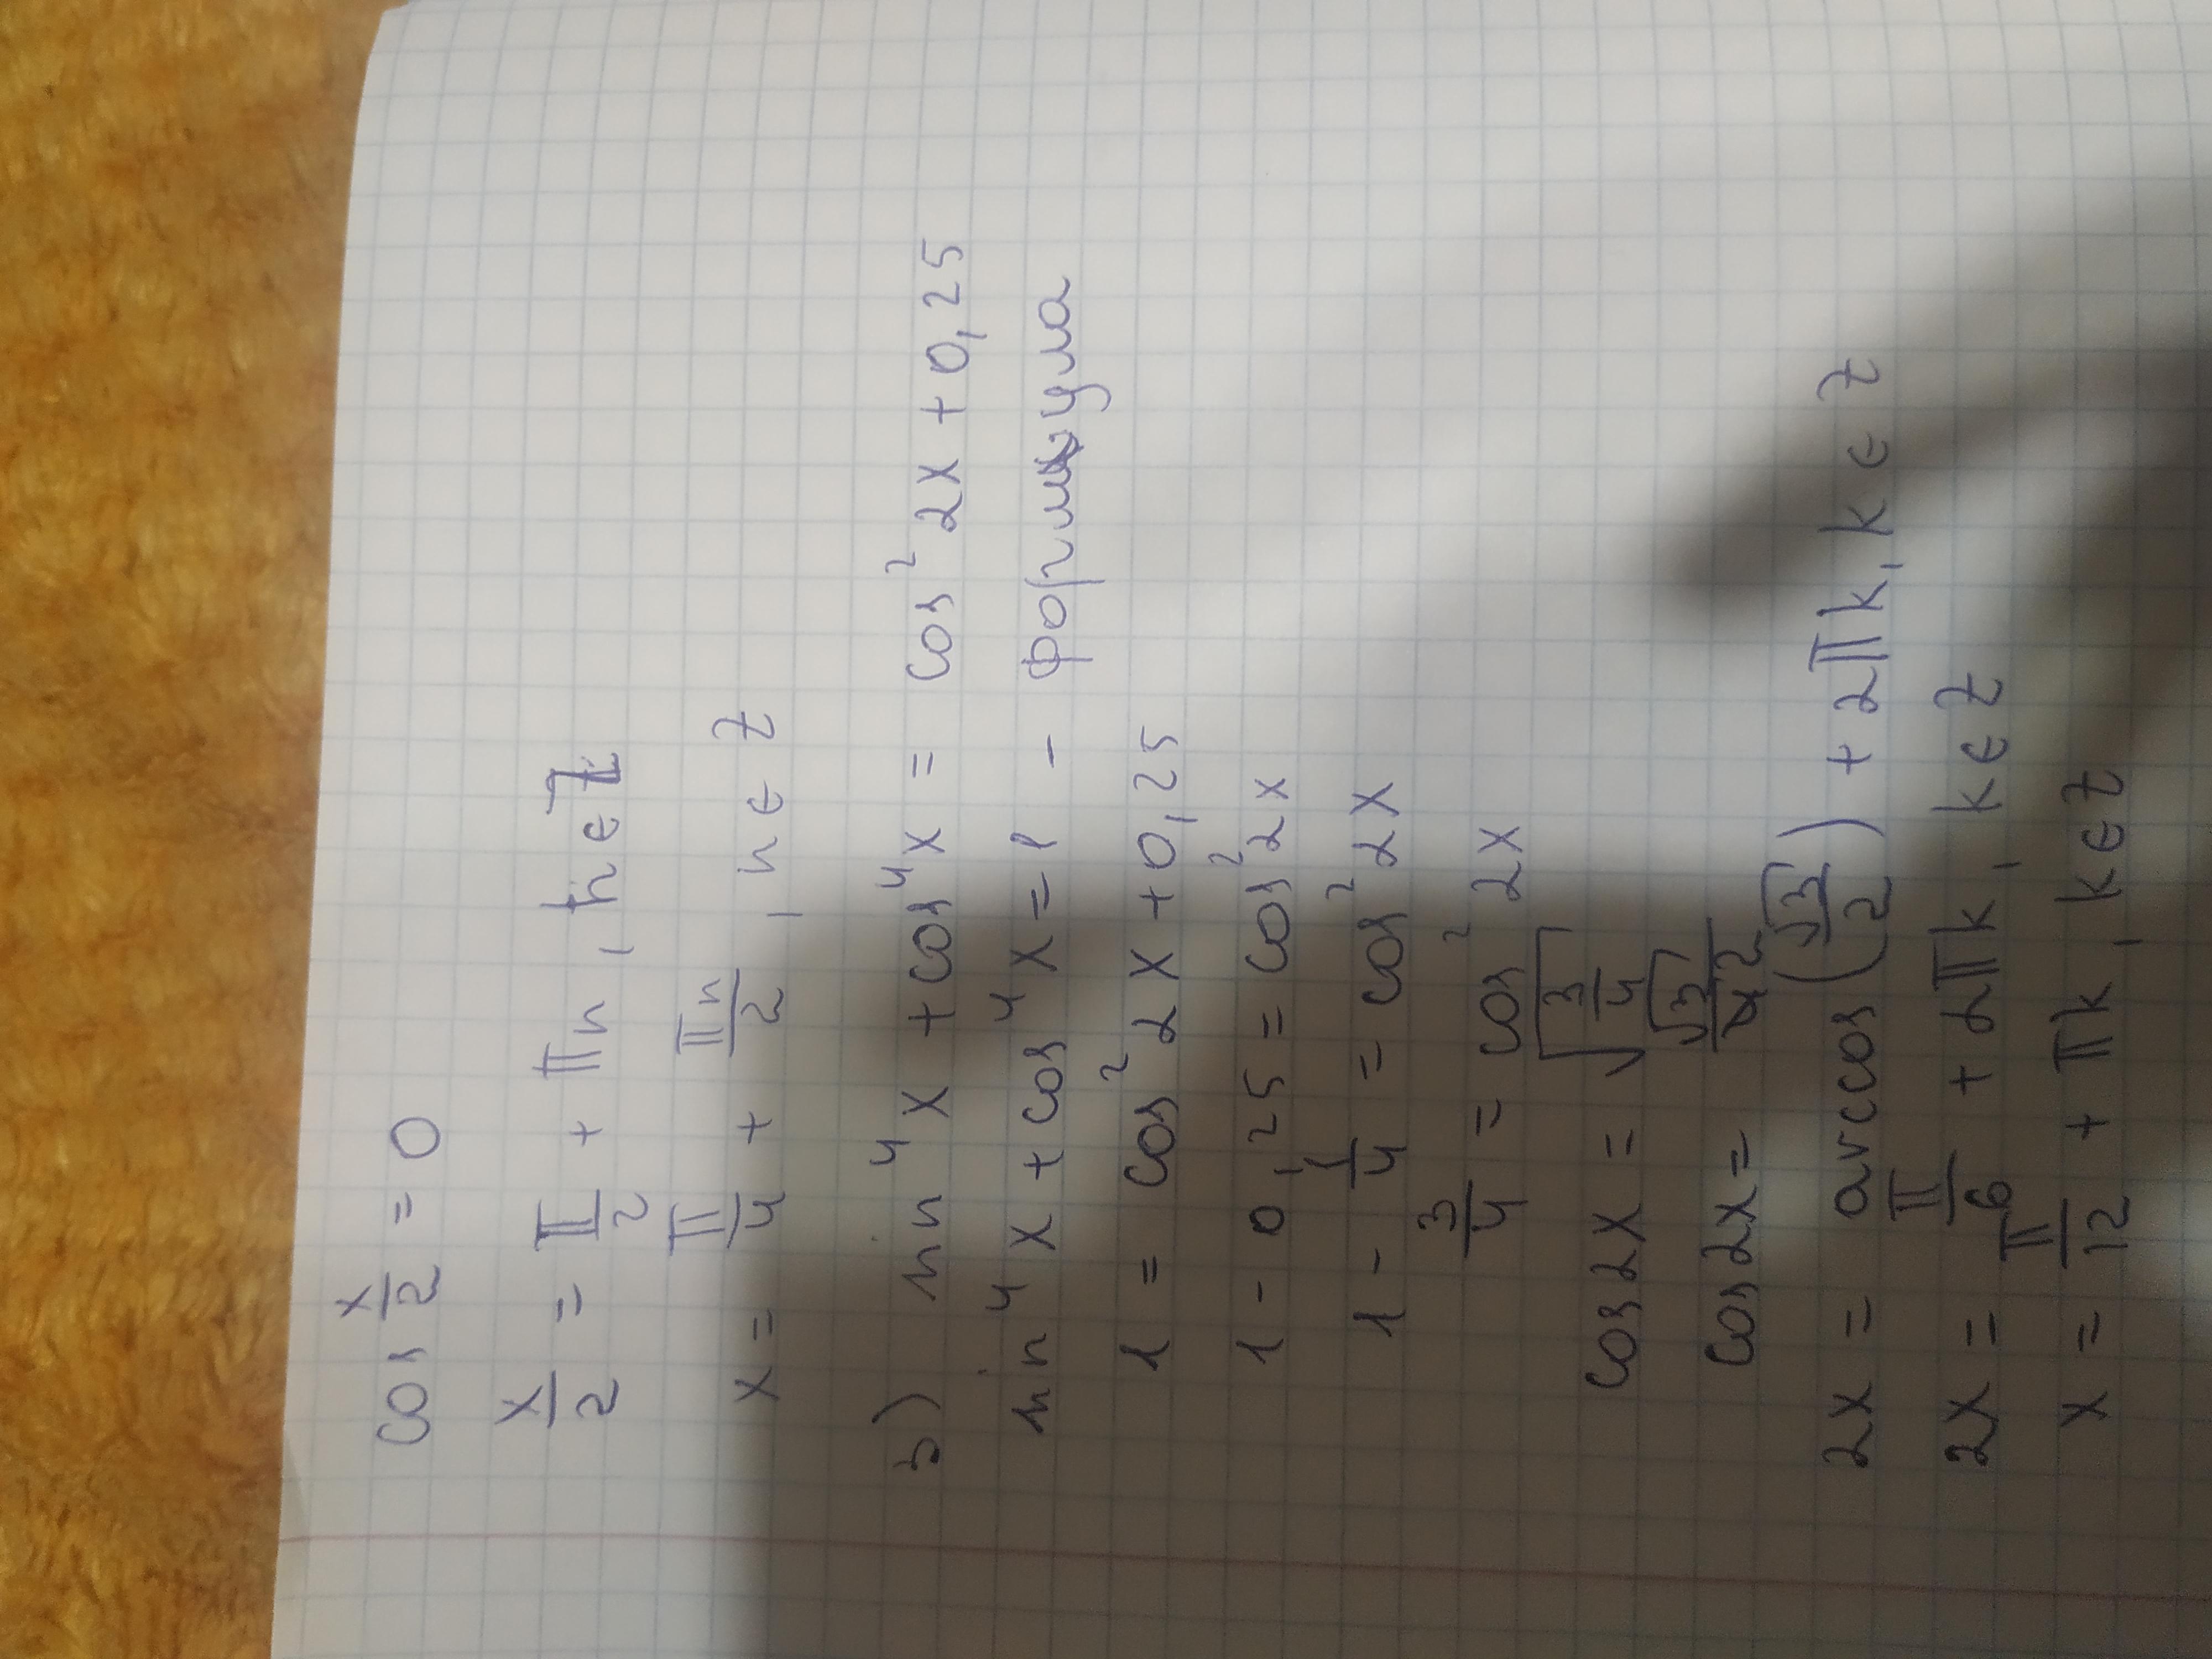 cos x/2 = 0
x/2 = π/2 + πn, n ∈ Z
x = π/4 + πn/2, n ∈ Z
в) sin⁴x + cos⁴x = cos²2x + 0,25
sin⁴x + cos⁴x = 1 - формула
1 = cos²2x + 0,25
1 - 0,25 = cos²2x
1 - 1/4 = cos²2x
3/4 = cos²2x
cos2x = √(3/4)
cos2x = √3/2
2x = arccos(√3/2) + 2πk, k ∈ Z
2x = π/6 + 2πk, k ∈ Z
x = π/12 + πk, k ∈ Z